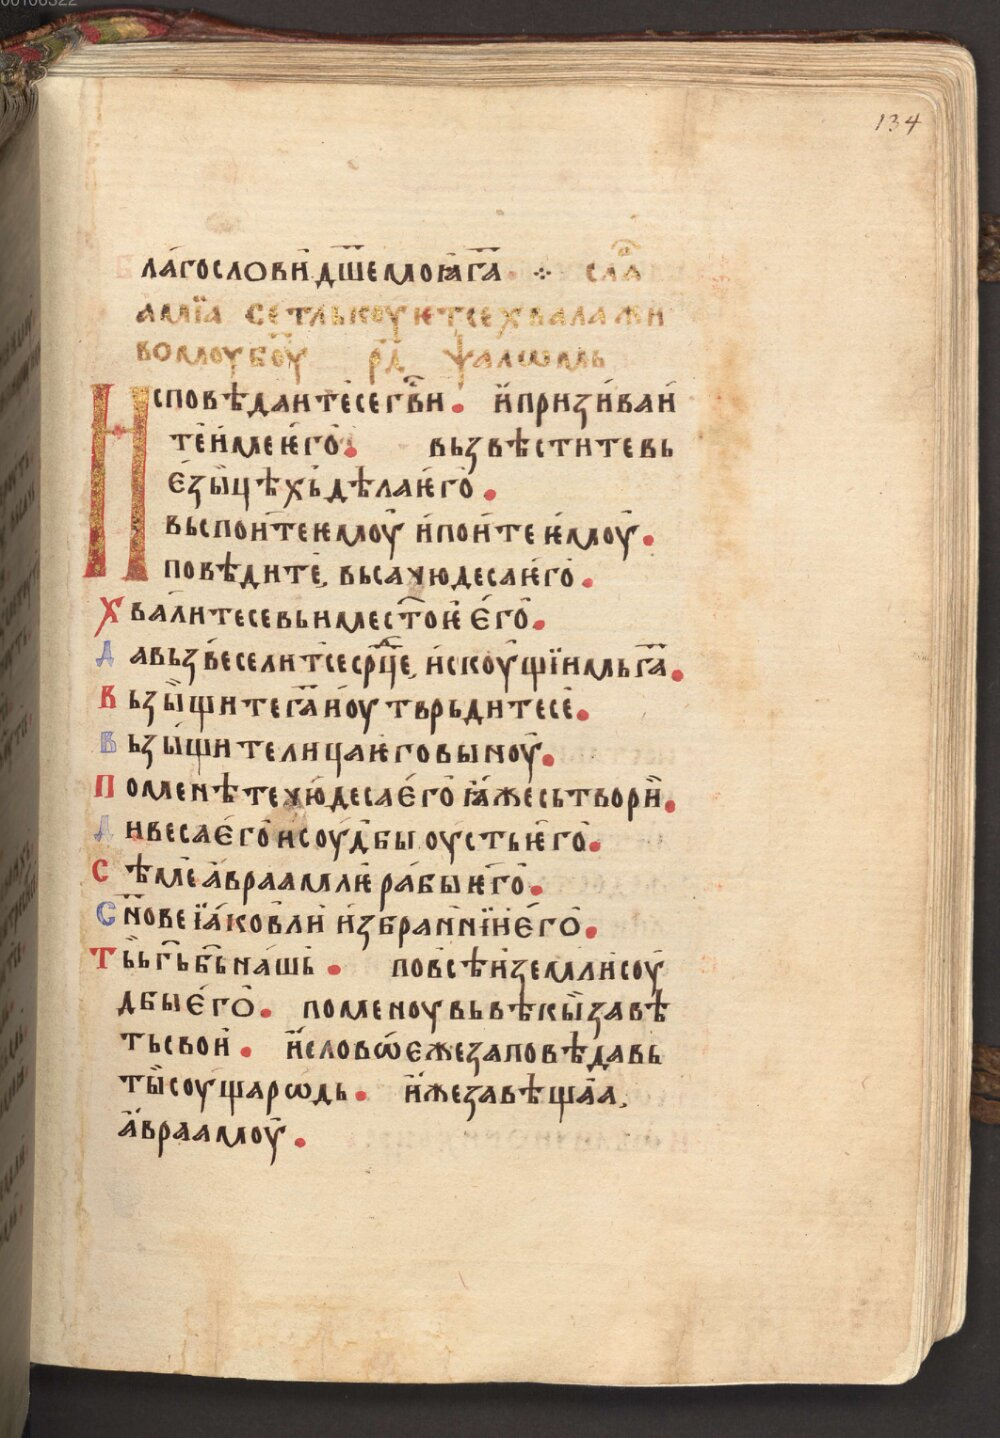 00106322
134
Благослови дш҃е моꙗ га҃ ⁘ сла҃
амїа
во моу бо҃у рд҃ ѱалѡмь
Исповѣдаите се гв҃и. и призиваи
те име ѥго. вьзвѣстите вь
езыцѣхь дѣла ѥго.
вьспоите ѥмоу и поите ѥмоу.
повѣдите, вса чюдеса ѥго.
Хвалите се вь име ст҃ое его.
Да вьзвеселит се срⷣце, искоущїимь га҃.
Вьзыщите га҃ и оутврьдите се.
Вьзыщите лица ѥго выноу.
Поменѣте чюдеса его ꙗже сьтвори.
Дивеса его и соудбы оусть ѥго.
Сѣме авраамлѥ рабы ѥго.
Сн҃ове їаковли избраннїи его.
Ть гь҃ бь҃ нашь. по всѣи земли соу
дбы его. поменоу вь вѣкы завѣ
ть свои. и слово еже заповѣда вь
тысоуща рѡдь. иже завѣща,
авраамоу.